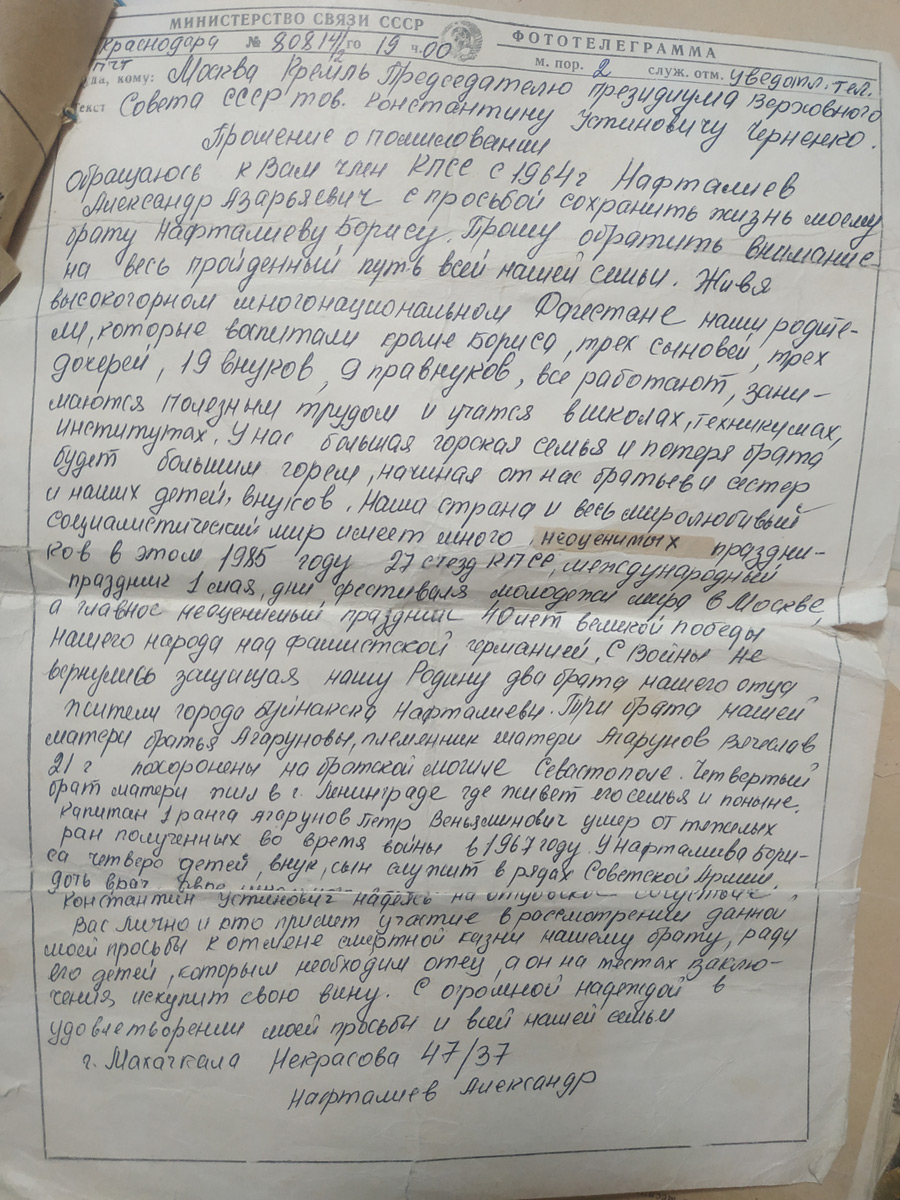 МИНИСТЕРСТВО СВЯЗИ СССР
ФОТОТЕЛЕГРАММА
Краснодара № 80814 1/2 го 19 ч. 00 м. пор. 2 служ. отм. уведомл. тел.
да, кому: Москва Кремль Председателю президиума Верховного
Текст Совета СССР тов. Константину Устиновичу Черненко.
Прошение о помиловании
Обращаюсь к Вам член КПСС с 1964г Нафталиев
Александр Азарьяевич с просьбой сохранить жизнь моему
брату Нафталиеву Борису. Прошу обратить внимание
на весь пройденный путь всей нашей семьи. Живя
высокогорном многонациональном Дагестане нашу родите-
ли, которые воспитали кроме Бориса, трех сыновей, трех
дочерей, 19 внуков, 9 правнуков, все работают, зани-
маются полезным трудом и учатся в школах, техникумах,
институтах. У нас большая горская семья и потеря брата
будет большим горем, начиная от нас братьев и сестер
и наших детей, внуков. Наша страна и весь миролюбивый
социалистический мир имеет много неоценимых праздни-
ков в этом 1985 году 27 съезд КПСС, международный
праздник 1 мая, дни фестиваля молодежи мира в Москве,
а главное неоценимый праздник 40 лет великой победы
нашего народа над фашистской германией. С войны не
вернулись защищая нашу Родину два брата нашего отца
жители города Буйнакска Нафталиевы. Три брата нашей
матери братья Агаруновы, племенник матери Агарунов Вячеслав
21г похоронены на братской могиле Севастополе. Четвертый
брат матери жил в г. Ленинграде где живет его семья и поныне.
капитан 1 ранга Агарунов Петр Веньяминович умер от тяжелых
ран полученных во время войны в 1967 году. У Нафталиева Бори-
са четверо детей, внук, сын служит в рядах Советской Армии,
дочь врач
Константин Устинович надеясь на
Вас лично и кто примет участие в рассмотрении данной
моей просьбы к отмене смертной казни нашему брату, ради
его детей, которым необходим отец, а он на местах заклю-
чения искупит свою вину. С огромной надеждой в
удовлетворении моей просьбы и всей нашей семьи
г. Махачкала Некрасова 47/37
Нафталиев Александр